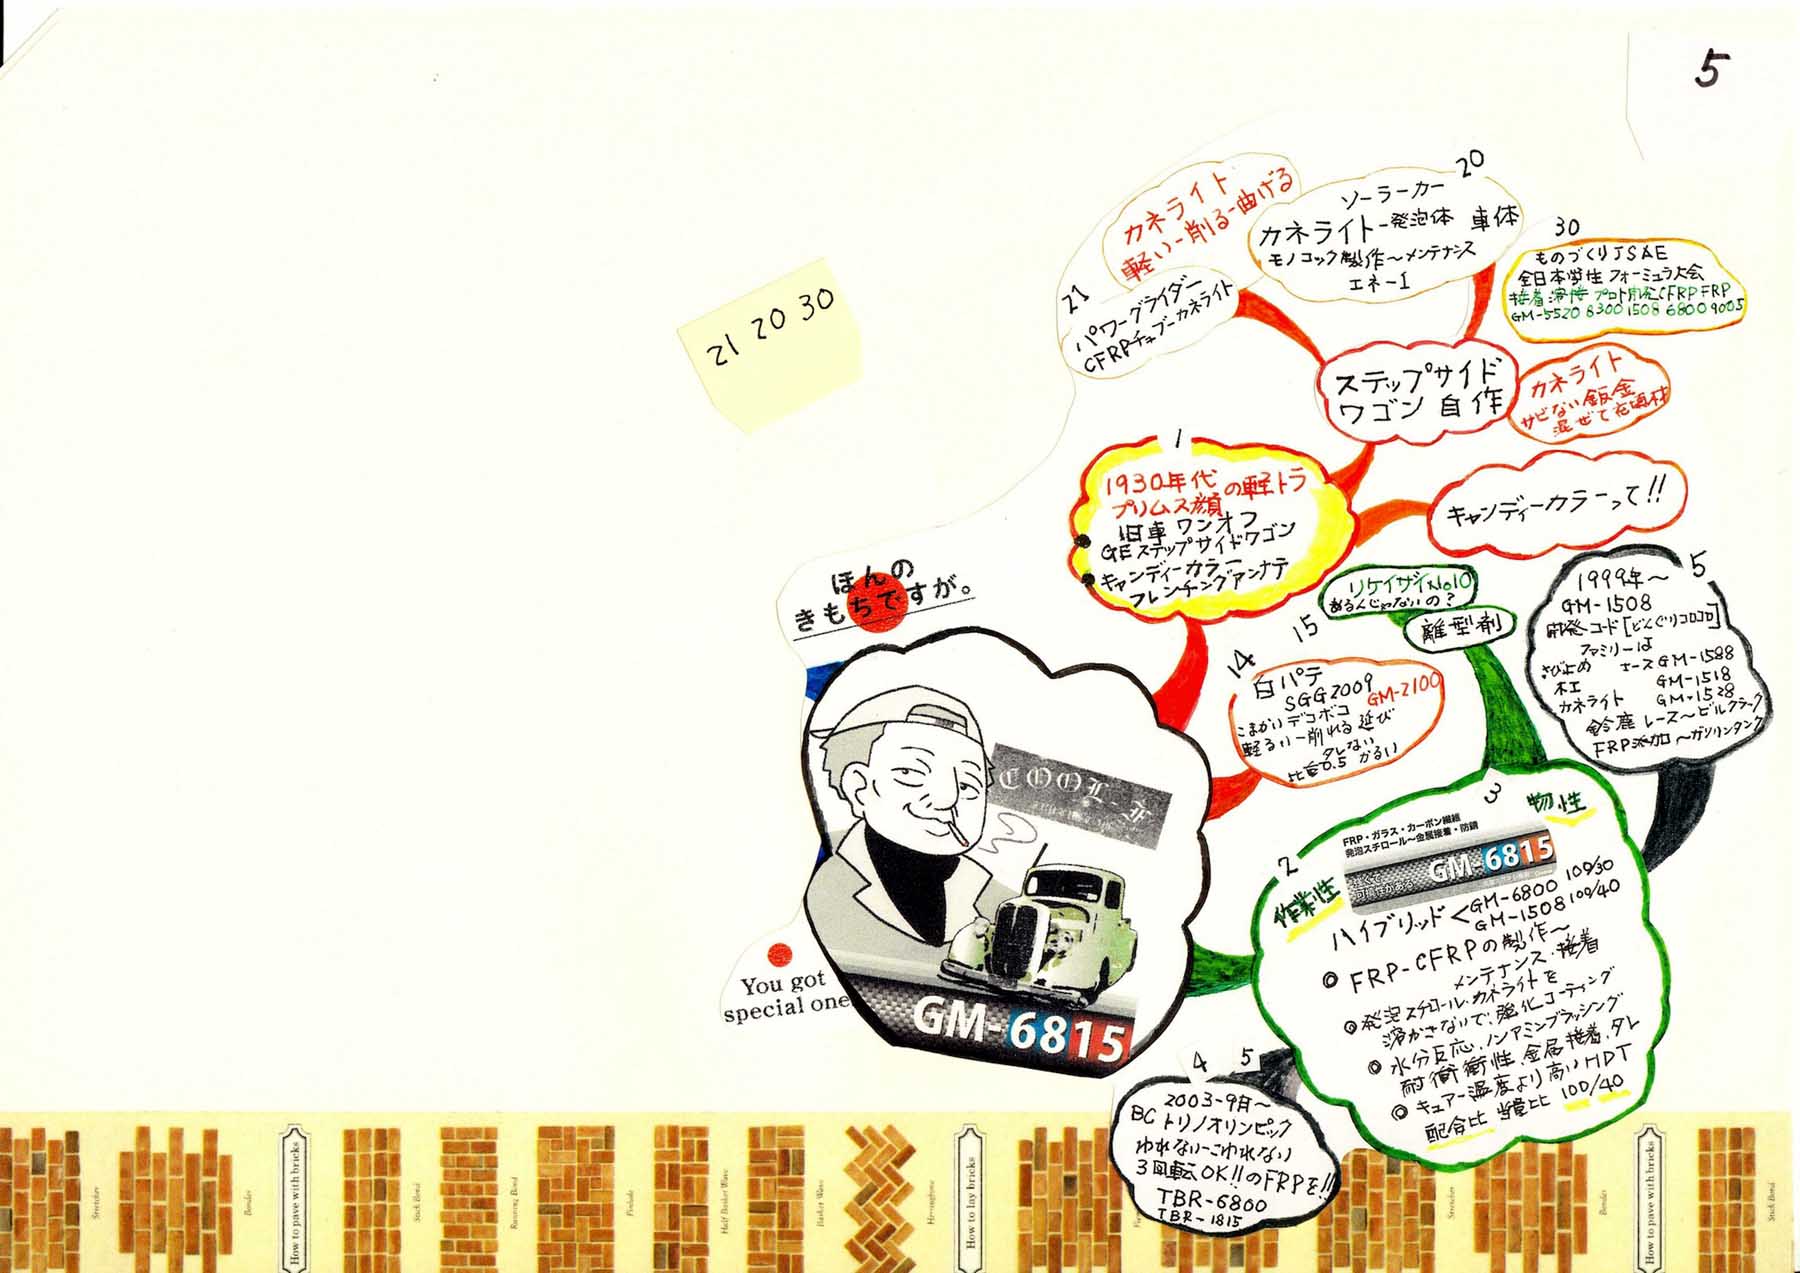 5
21 20 30
カネライト
軽いー削るー曲げる
20
ソーラーカー
カネライトー発泡体 車体
モノコック製作〜メンテナンス
エネー1
30
ものづくりJSAE
全日本学生フォーミュラ大会
GM-5520 8300 1508 6800 9005
21
パワーグライダー
CFRPチューブーカネライト
ステップサイド
ワゴン 自作
カネライト
サビない鈑金
混ぜて充填材
1
1930年代の軽トラ
プリムス顔
旧車 ワンオフ
GEステップサイドワゴン
キャンディーカラー
フレンチングアンナテ
キャンディーカラーって!!
ほんの
きもちですが。
リケイザイNo10
あるんじゃないの?
離型剤
15
14
白パテ
SGG2009
GM-2100
こまかいデコボコ
軽るいー削れる 延び
タレない
比重0.5 かるい
5
1999年〜
GM-1508
開発コード[どんぐりコロコロ]
ファミリーは
さび止め エースGM-1588
木工 GM-1518
カネライト GM-1528
鈴鹿 レース〜ビルクラック
FRP添加〜ガソリンタンク
COOL-F
You got
special one
GM-6815
3
物性
2
作業性
FRP・ガラス・カーボン繊維
発泡スチロール〜金属接着・防錆
GM-6815
ハイブリッド<GM-6800 100/30
GM-1508 100/40
◎ FRP-CFRPの製作〜
メンテナンス・接着
◎ 発泡スチロール.カネライトを
溶かさないで、強化コーティング
◎ 水分反応.ノンアミンブラッシング
耐衝衝性.金属接着.タレ
◎ キュアー温度より高いHDT
配合比 当量比 100/40
4 5
2003-9月〜
BCトリノオリンピック
ゆれないーこわれない
3回転OK!!のFRPを!!
TBR-6800
TBR-1815
Stretcher
Bonder
How to pave with bricks
Stack Bond
Running Bond
Half Basket Wave
Basket Wave
Herringbone
How to lay bricks
Stretcher
Bonder
How to pave with bricks
Stack Bond